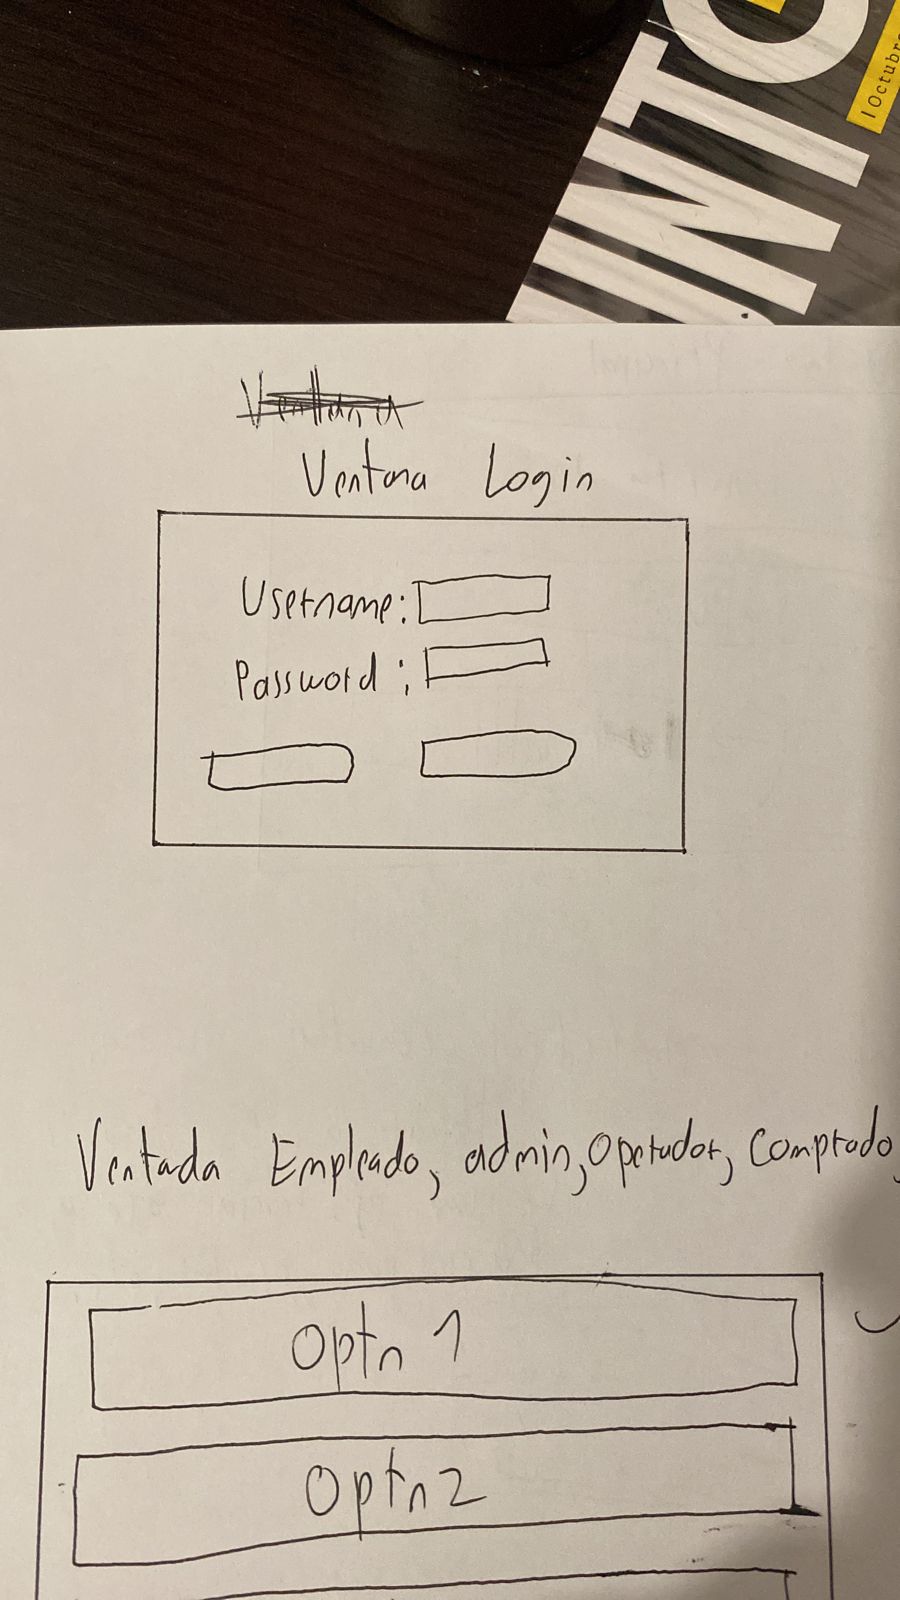 1 Octubre
Ventana Login
Username:
Password :
Ventada Empleado, admin, Operador, Comprado
Optn 1
Optn 2